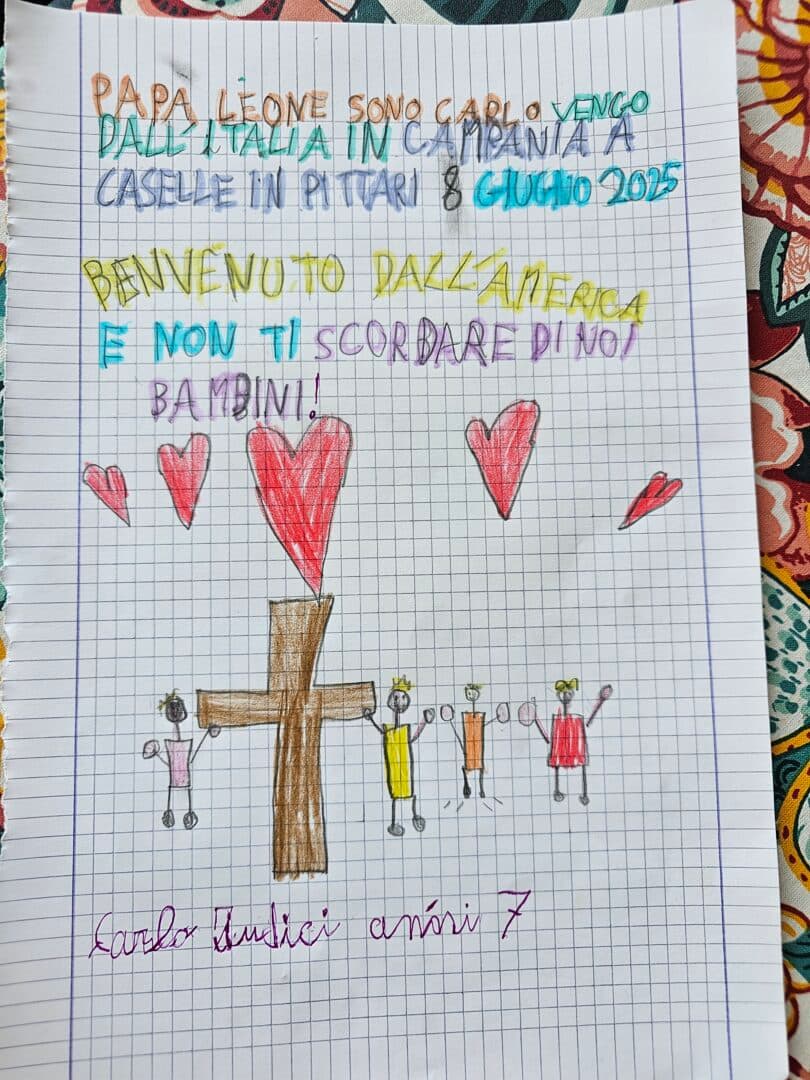 PAPÀ LEONE SONO CARLO VENGO
DALL'ITALIA IN CAMPANIA A
CASELLE IN PITTARI 8 GIUGNO 2025
BENVENUTO DALL'AMERICA
E NON TI SCORDARE DI NOI
BAMBINI!
Carlo Iudici anni 7